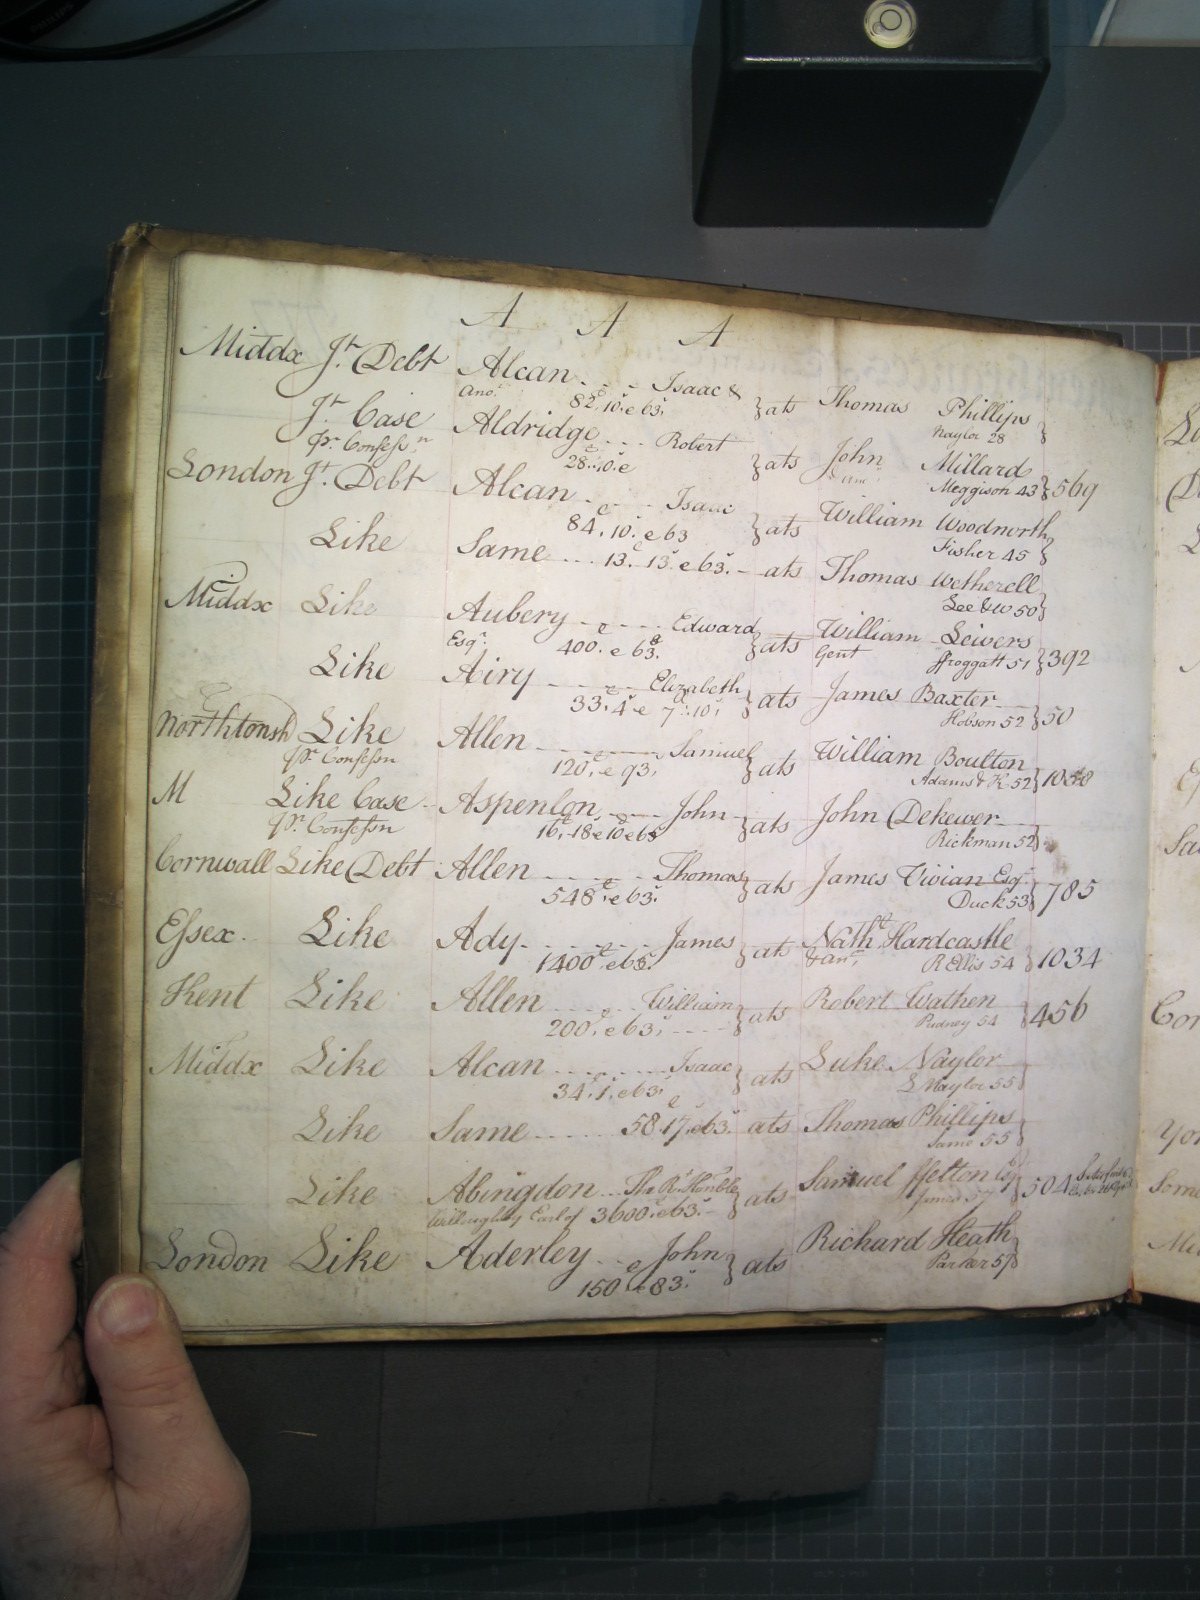 A A A
Middx Jt. Debt Alcan - - - Isaac & } ats Thomas Phillips }
Ano. 82. 10. e 63. Naylor 28
Jt. Case Aldridge - - - Robert } ats John Millard } 569
Pr. Confessn. 28. 10. e Meggison 43
London Jt. Debt Alcan - - - Isaac } ats William Woodnorth }
84. 10. e 63 Fisher 45
Like Same - - - 13. 13. e 63. - ats Thomas Wetherell }
Lee & W 50
Middx Like Aubery - - - Edward } ats William Sewers } 392
Esqr. 400. e 63. Gent ffroggatt 51
Like Airy - - - Elizabeth } ats James Baxter } 50
33. 4. e 7. 10. Hobson 52
Northtonsh Like Allen - - - Samuel } ats William Boulton }
Pr. Confessn 120. e 93. Adams & K. 52
M Like Case Aspenlon - - - John } ats John Dekewer }
Pr. Confessn 16. 18 e 10 e 63 Rickman 52
Cornwall Like Debt Allen - - - Thomas } ats James Vivian Esqr. } 785
548. e 63. Duck 53
Essex. Like Ady - - - James } ats Nathl. Hardcastle } 1034
1400. e 63. & anr. R Ellis 54
Kent Like Allen - - - William } ats Robert Wathen } 456
200. e 63. - - - Pudney 54
Middx Like Alcan - - - Isaac } ats Luke Naylor }
34. 1. e 63. L Naylor 55
Like Same - - - 58 17. e 63. ats Thomas Phillips }
Same 55
Like Abingdon - - - The Rt. Honble } ats Samuel ffelton Esqr } 504
Willoughby Earl of 3600. e 63. - Jones 57
London Like Aderley - - - John } ats Richard Heath }
150 e 83. Parker 57